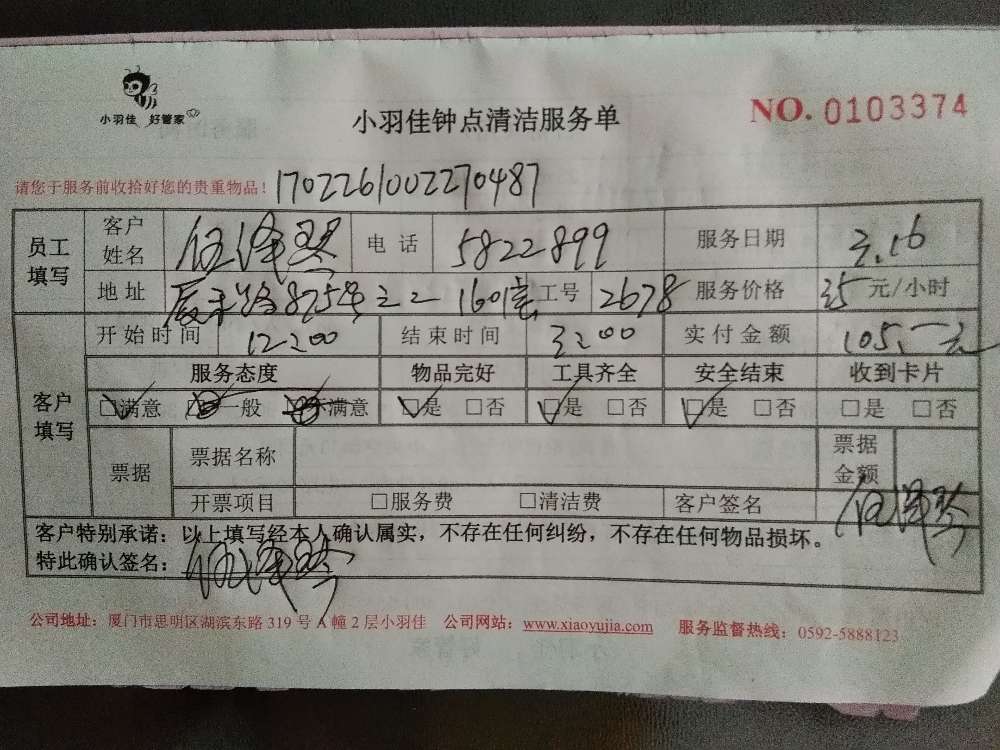 小羽佳 好管家
小羽佳钟点清洁服务单
NO. 0103374
请您于服务前收拾好您的贵重物品！ 1702261002270487
员工填写 客户姓名 伍泽琴 电话 5822899 服务日期 3.16
地址 875号之二 1601室 工号 2678 服务价格 35 元/小时
客户填写 开始时间 12:00 结束时间 3:00 实付金额 105.一元
服务态度 物品完好 工具齐全 安全结束 收到卡片
☑满意 □一般 □不满意 ☑是 □否 ☑是 □否 ☑是 □否 □是 □否
票据 票据名称 票据金额
开票项目 □服务费 □清洁费 客户签名 伍泽琴
客户特别承诺：以上填写经本人确认属实，不存在任何纠纷，不存在任何物品损坏。
特此确认签名：伍泽琴
公司地址：厦门市思明区湖滨东路 319 号 A 幢 2 层小羽佳 公司网站：www.xiaoyujia.com 服务监督热线：0592-5888123